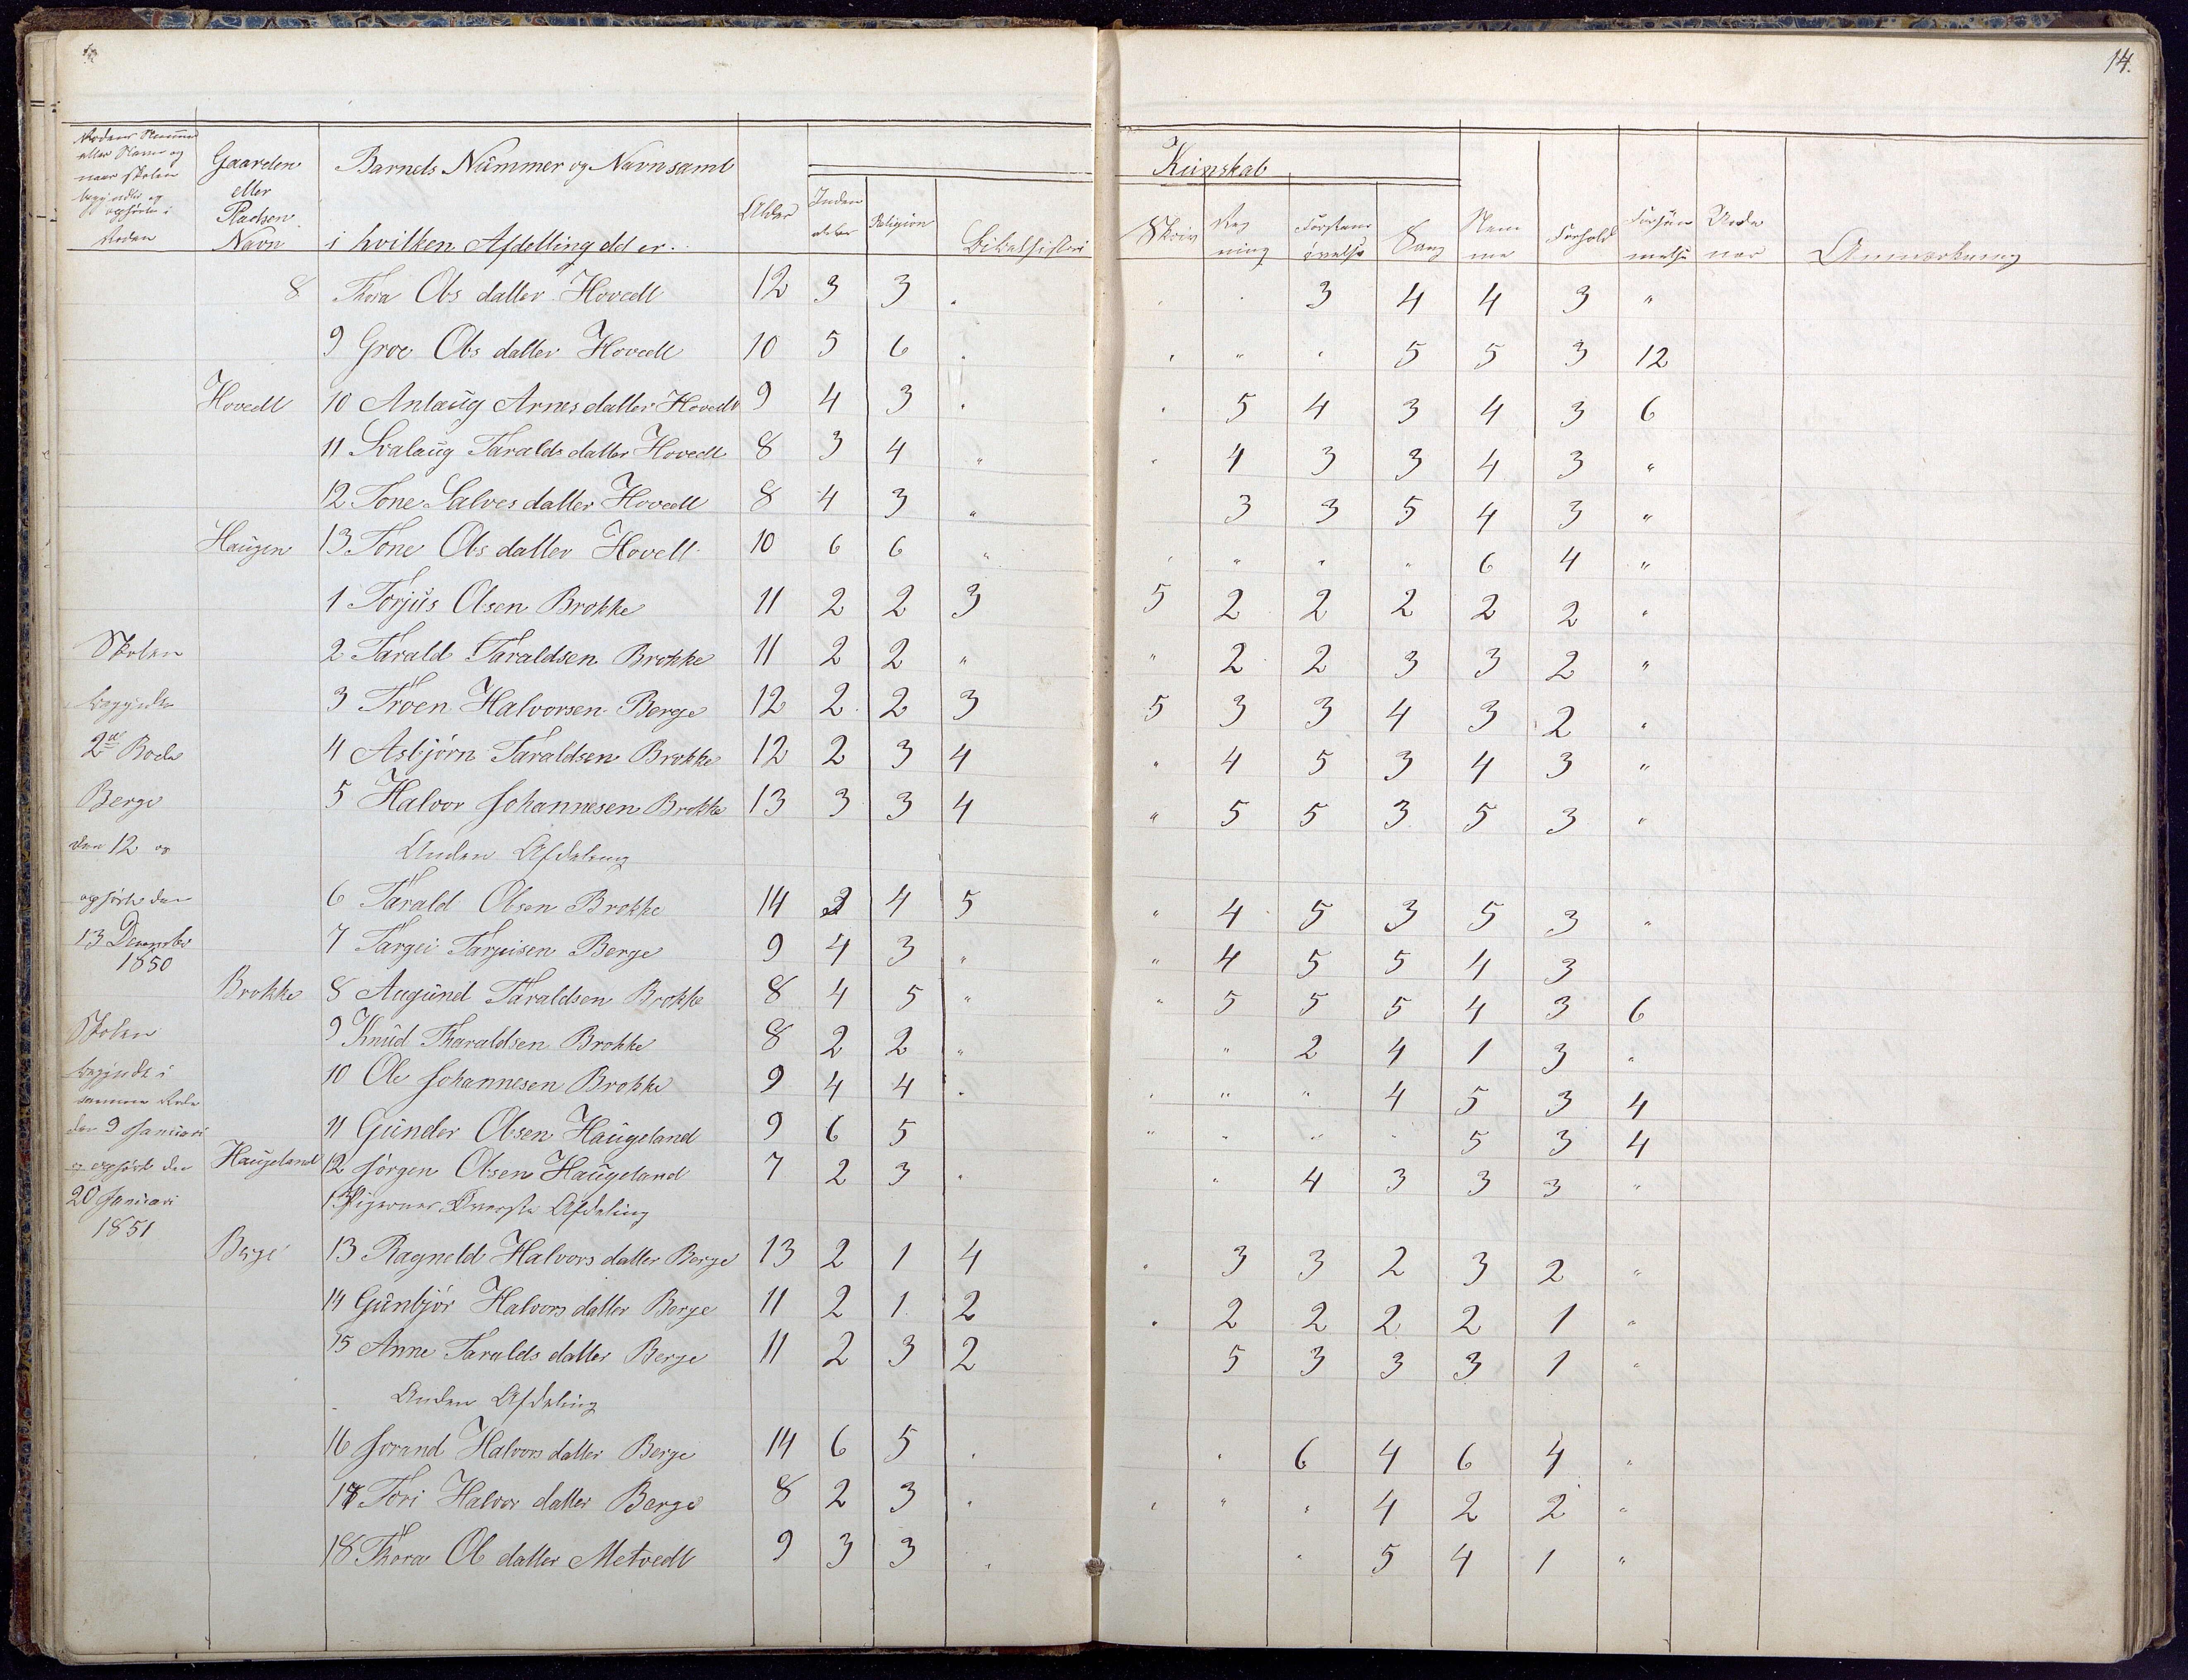 14.
Rodens Nummer
eller Navn og
naar skolen
begyndte og
ophørte i
Roden
Gaarden
eller
Pladsen
Navn
Barnets Nummer og Navn samt
i hvilken Afdelling dd er.
Alder
Inden
Religion
Bibelhistori
Kunskab
Skriv
Reg
ning
Forstans
øvelse
Sang
Nem
me
Forhold
Forsøm
melse
Anmærkning
8 Thora Ols datter Hovedt 12 3 3 " " " 3 4 4 3 "
9 Groe Ols datter Hovedt 10 5 6 " " " " 5 5 3 12
Hovedt 10 Anlaug Arnes datter Hovedt 9 4 3 " " 5 4 3 4 3 6
11 Svalaug Taralds datter Hovedt 8 3 4 " " 4 3 3 4 3 "
12 Tone Salves datter Hovedt 8 4 3 " 3 3 5 4 3 "
Haugen 13 Tone Ols datter Hovett 10 6 6 " " " " " 6 4 "
1 Torjus Olsen Brokke 11 2 2 3 5 2 2 2 2 2 "
Skolen 2 Tarald Taraldsen Brokke 11 2 2 " " 2 2 3 3 2 "
begyndte 3 Troen Halvorsen Berge 12 2 2 3 5 3 3 4 3 2 "
2de Rode 4 Asbjørn Taraldsen Brokke 12 2 3 4 " 4 5 3 4 3 "
Berge 5 Halvor Johannesen Brokke 13 3 3 4 " 5 5 3 5 3 "
den 12 og Anden Afdeling
ophørte den 6 Tarald Olsen Brokke 14 3 4 5 " 4 5 3 5 3 "
13 December 7 Targei Tarjeisen Berge 9 4 3 " " 4 5 5 4 3
1850
Brokke 8 Augund Taraldsen Brokke 8 4 5 " " 5 5 5 4 3 6
Skolen 9 Knud Tharaldsen Brokke 8 2 2 " " 2 4 1 3 "
begyndte i 10 Ole Johannesen Brokke 9 4 4 " " " " 4 5 3 4
samme Rode
den 9 Januari 11 Gunder Olsen Haugeland 9 6 5 " " " " 5 3 4
og ophørte den Haugeland 12 Jørgen Olsen Haugeland 7 2 3 " " 4 3 3 3 "
20 Januari Pigernes Øverste Afdeling
1851
Berge 13 Ragneld Halvors datter Berge 13 2 1 4 " 3 3 2 3 2 "
14 Gunbjør Halvors datter Berge 11 2 1 2 " 2 2 2 2 1 "
15 Anne Taralds datter Berge 11 2 3 2 5 3 3 3 1 "
Anden Afdeling
16 Jorand Halvors datter Berge 14 6 5 " " 6 4 6 4 "
17 Tori Halvor datter Berge 8 2 3 " " " " 4 2 2 "
18 Thora Ol datter Metvedt 9 3 3 " " 5 4 1 "